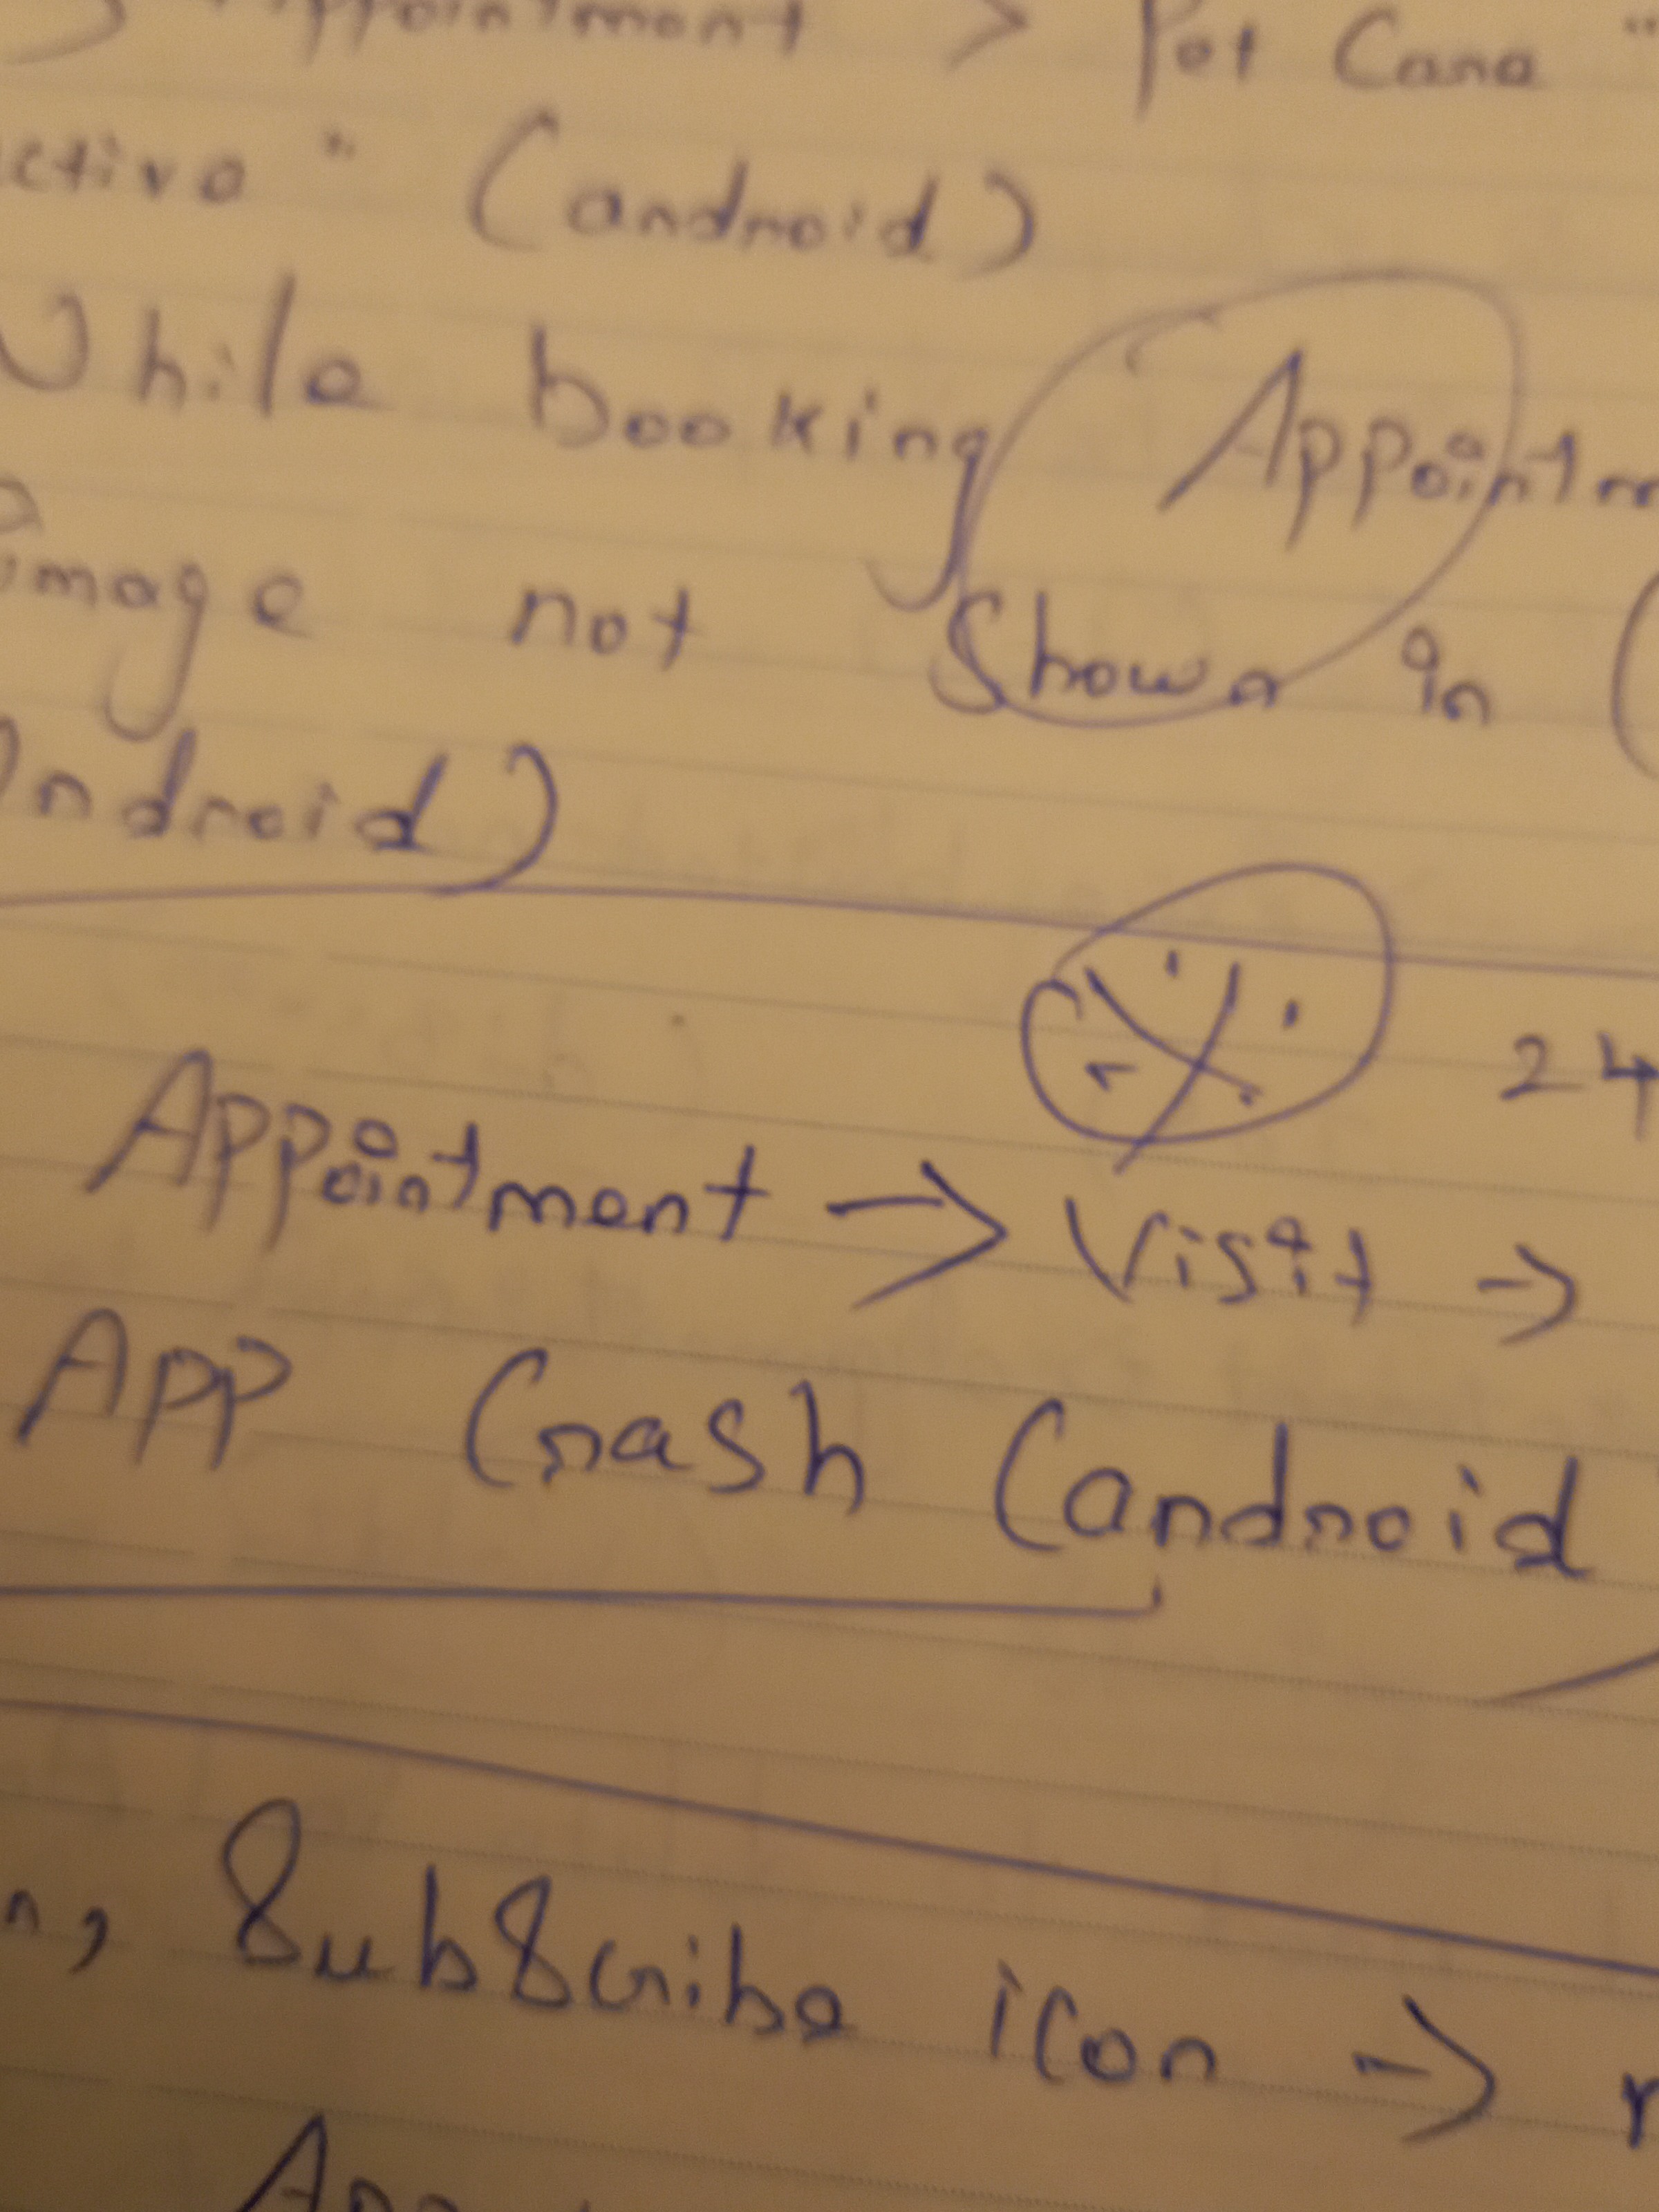 Appointment > Pet Care "
ctive" (android)
While booking Appointm
image not shown in (
Android)
24
Appointment → Visit →
App Crash (android
n, Subscribe icon →